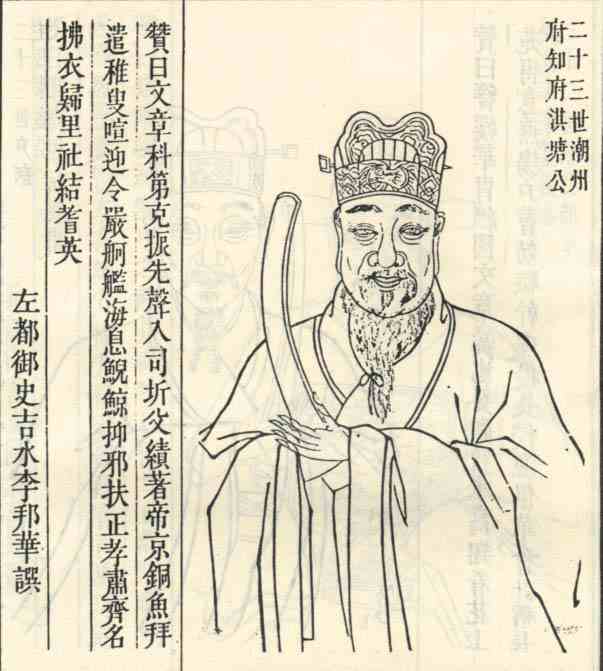 二十三世潮州
府知府淇塘公
贊曰文章科第克振先聲入司圻父績著帝京銅魚拜
遣稚叟喧迎令嚴舸艦海息鯢鯨抑邪扶正孝肅齊名
拂衣歸里社結耆英
左都御史吉水李邦華譔